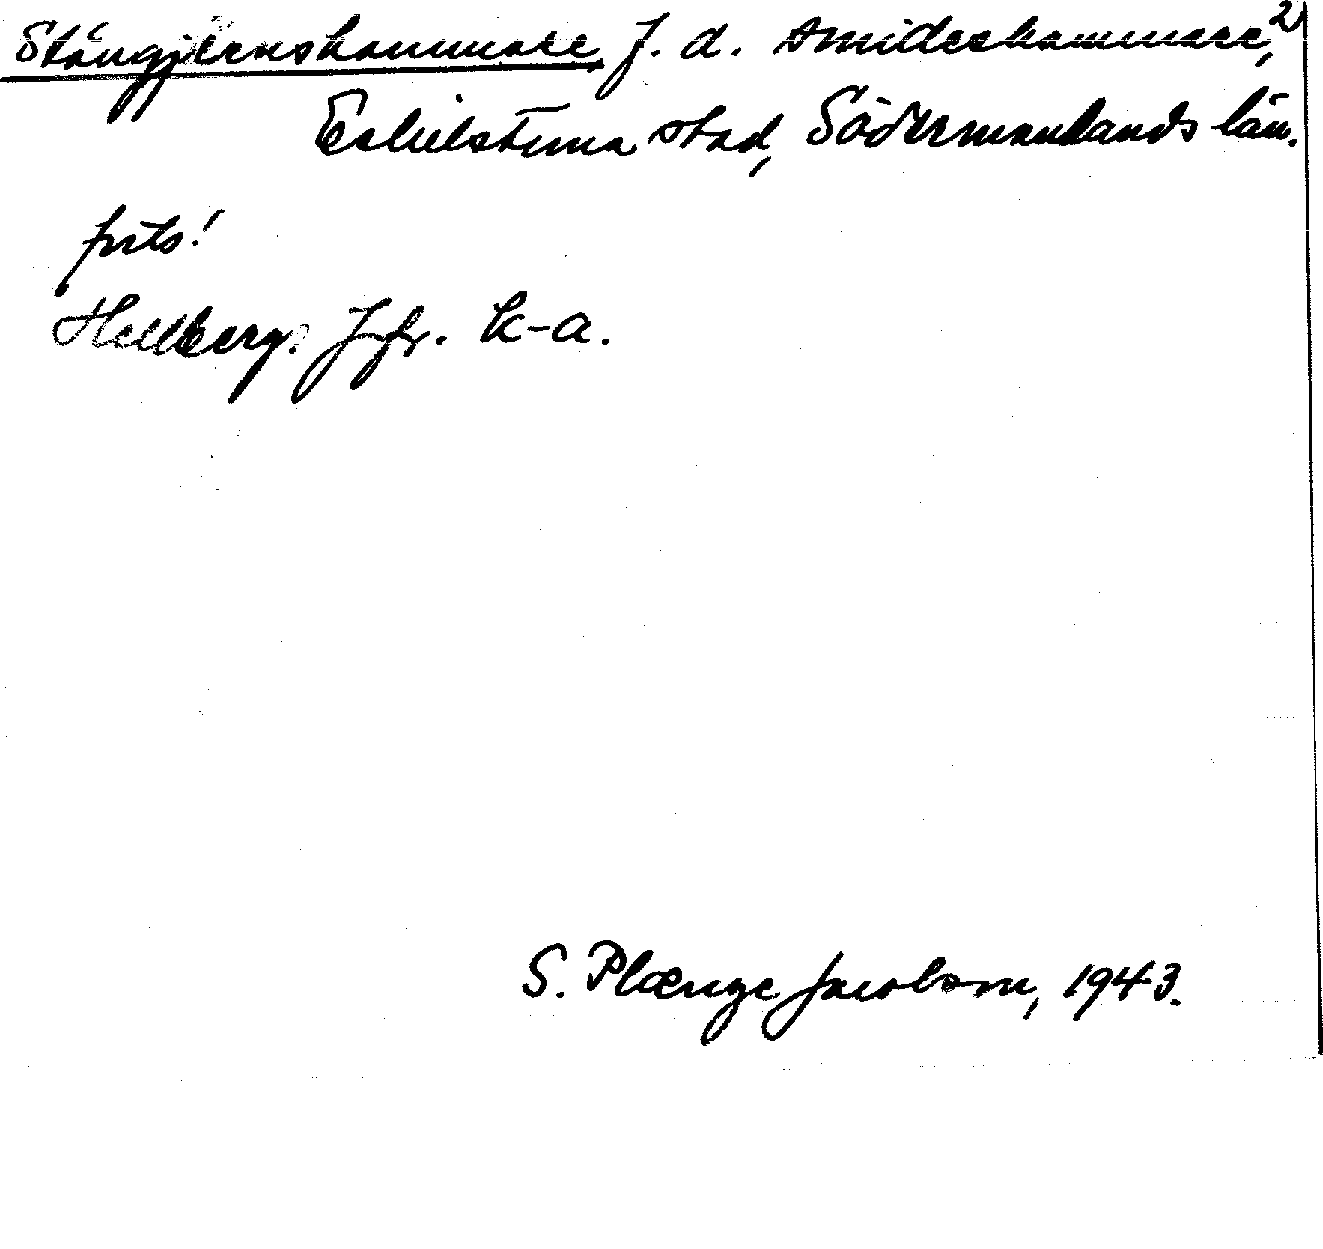 Stångjärnshammare, f. d. smideshammare, 2)
Eskilstuna stad, Södermanlands län.
forts!
Hellberg. Jfr. k-a.
S. Plænge Jacobson, 1943.